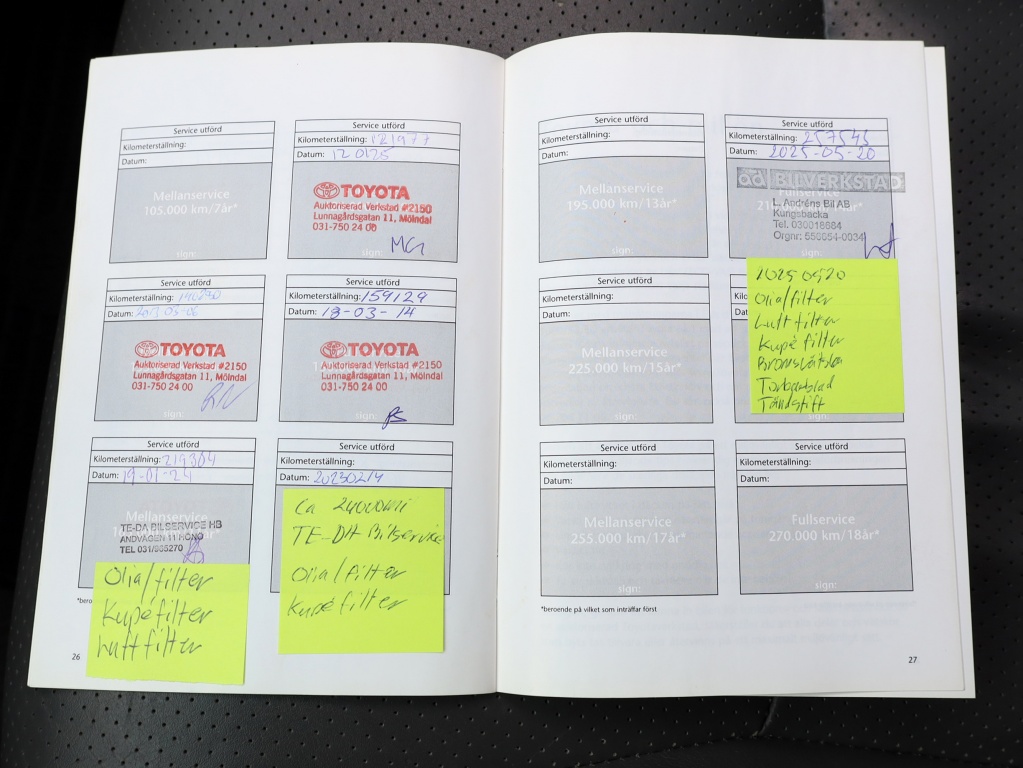 Service utförd
Kilometerställning:
Datum:
Mellanservice
105.000 km/7år*
sign:
Service utförd
Kilometerställning: 121977
Datum: 120125
TOYOTA
Auktoriserad Verkstad #2150
Lunnagårdsgatan 11, Mölndal
031-750 24 00
sign:
Service utförd
Kilometerställning:
Datum:
TOYOTA
Auktoriserad Verkstad #2150
Lunnagårdsgatan 11, Mölndal
031-750 24 00
sign:
Service utförd
Kilometerställning: 159129
Datum: 18-03-14
TOYOTA
Auktoriserad Verkstad #2150
Lunnagårdsgatan 11, Mölndal
031-750 24 00
sign:
Service utförd
Kilometerställning: 219304
Datum: 19-01-24
Mellanservice
TE-DA BILSERVICE HB
ANDVÄGEN 11 HÖNÖ
TEL 031/965270
Olja/filter
Kupéfilter
Luftfilter
Service utförd
Kilometerställning:
Datum: 20230214
Ca 24000mi
TE-DA Bilservice
Olja/filter
Kupéfilter
26
Service utförd
Kilometerställning:
Datum:
Mellanservice
195.000 km/13år*
sign:
Service utförd
Kilometerställning: 257545
Datum: 2025-05-20
ad BILVERKSTAD
L. Andréns Bil AB
Kungsbacka
Tel. 030018684
Orgnr: 556654-0034
sign:
Olja/filter
Luftfilter
Kupé filter
Bromsvätska
Torkarblad
Tändstift
Service utförd
Kilometerställning:
Datum:
Mellanservice
225.000 km/15år*
sign:
Service utförd
Kilometerställning:
Datum:
Mellanservice
255.000 km/17år*
sign:
Service utförd
Kilometerställning:
Datum:
Fullservice
270.000 km/18år*
sign:
*beroende på vilket som inträffar först
27